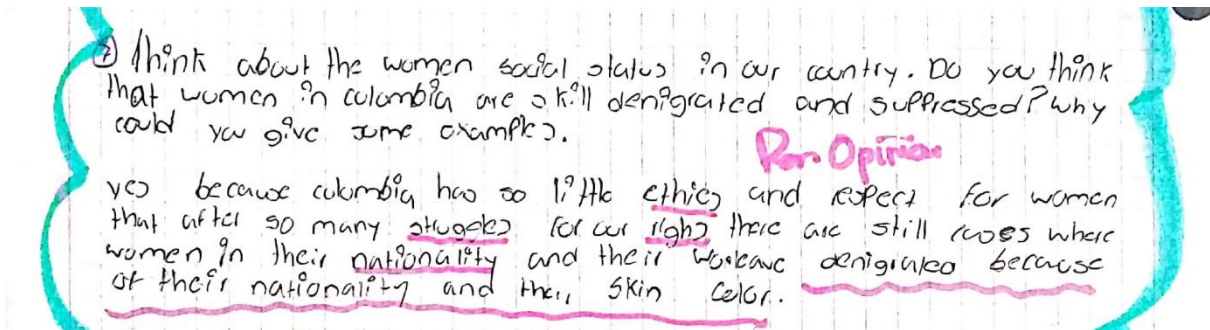 7 Think about the women social status in our country. Do you think
that women in colombia are skill denigrated and suppressed? why
could you give some examples.
Opinion
yes because colombia has so little ethics and respect for women
that after so many struggles for our righs there are still cases where
women in their nationality and their denigrated because
of their nationality and their skin color.